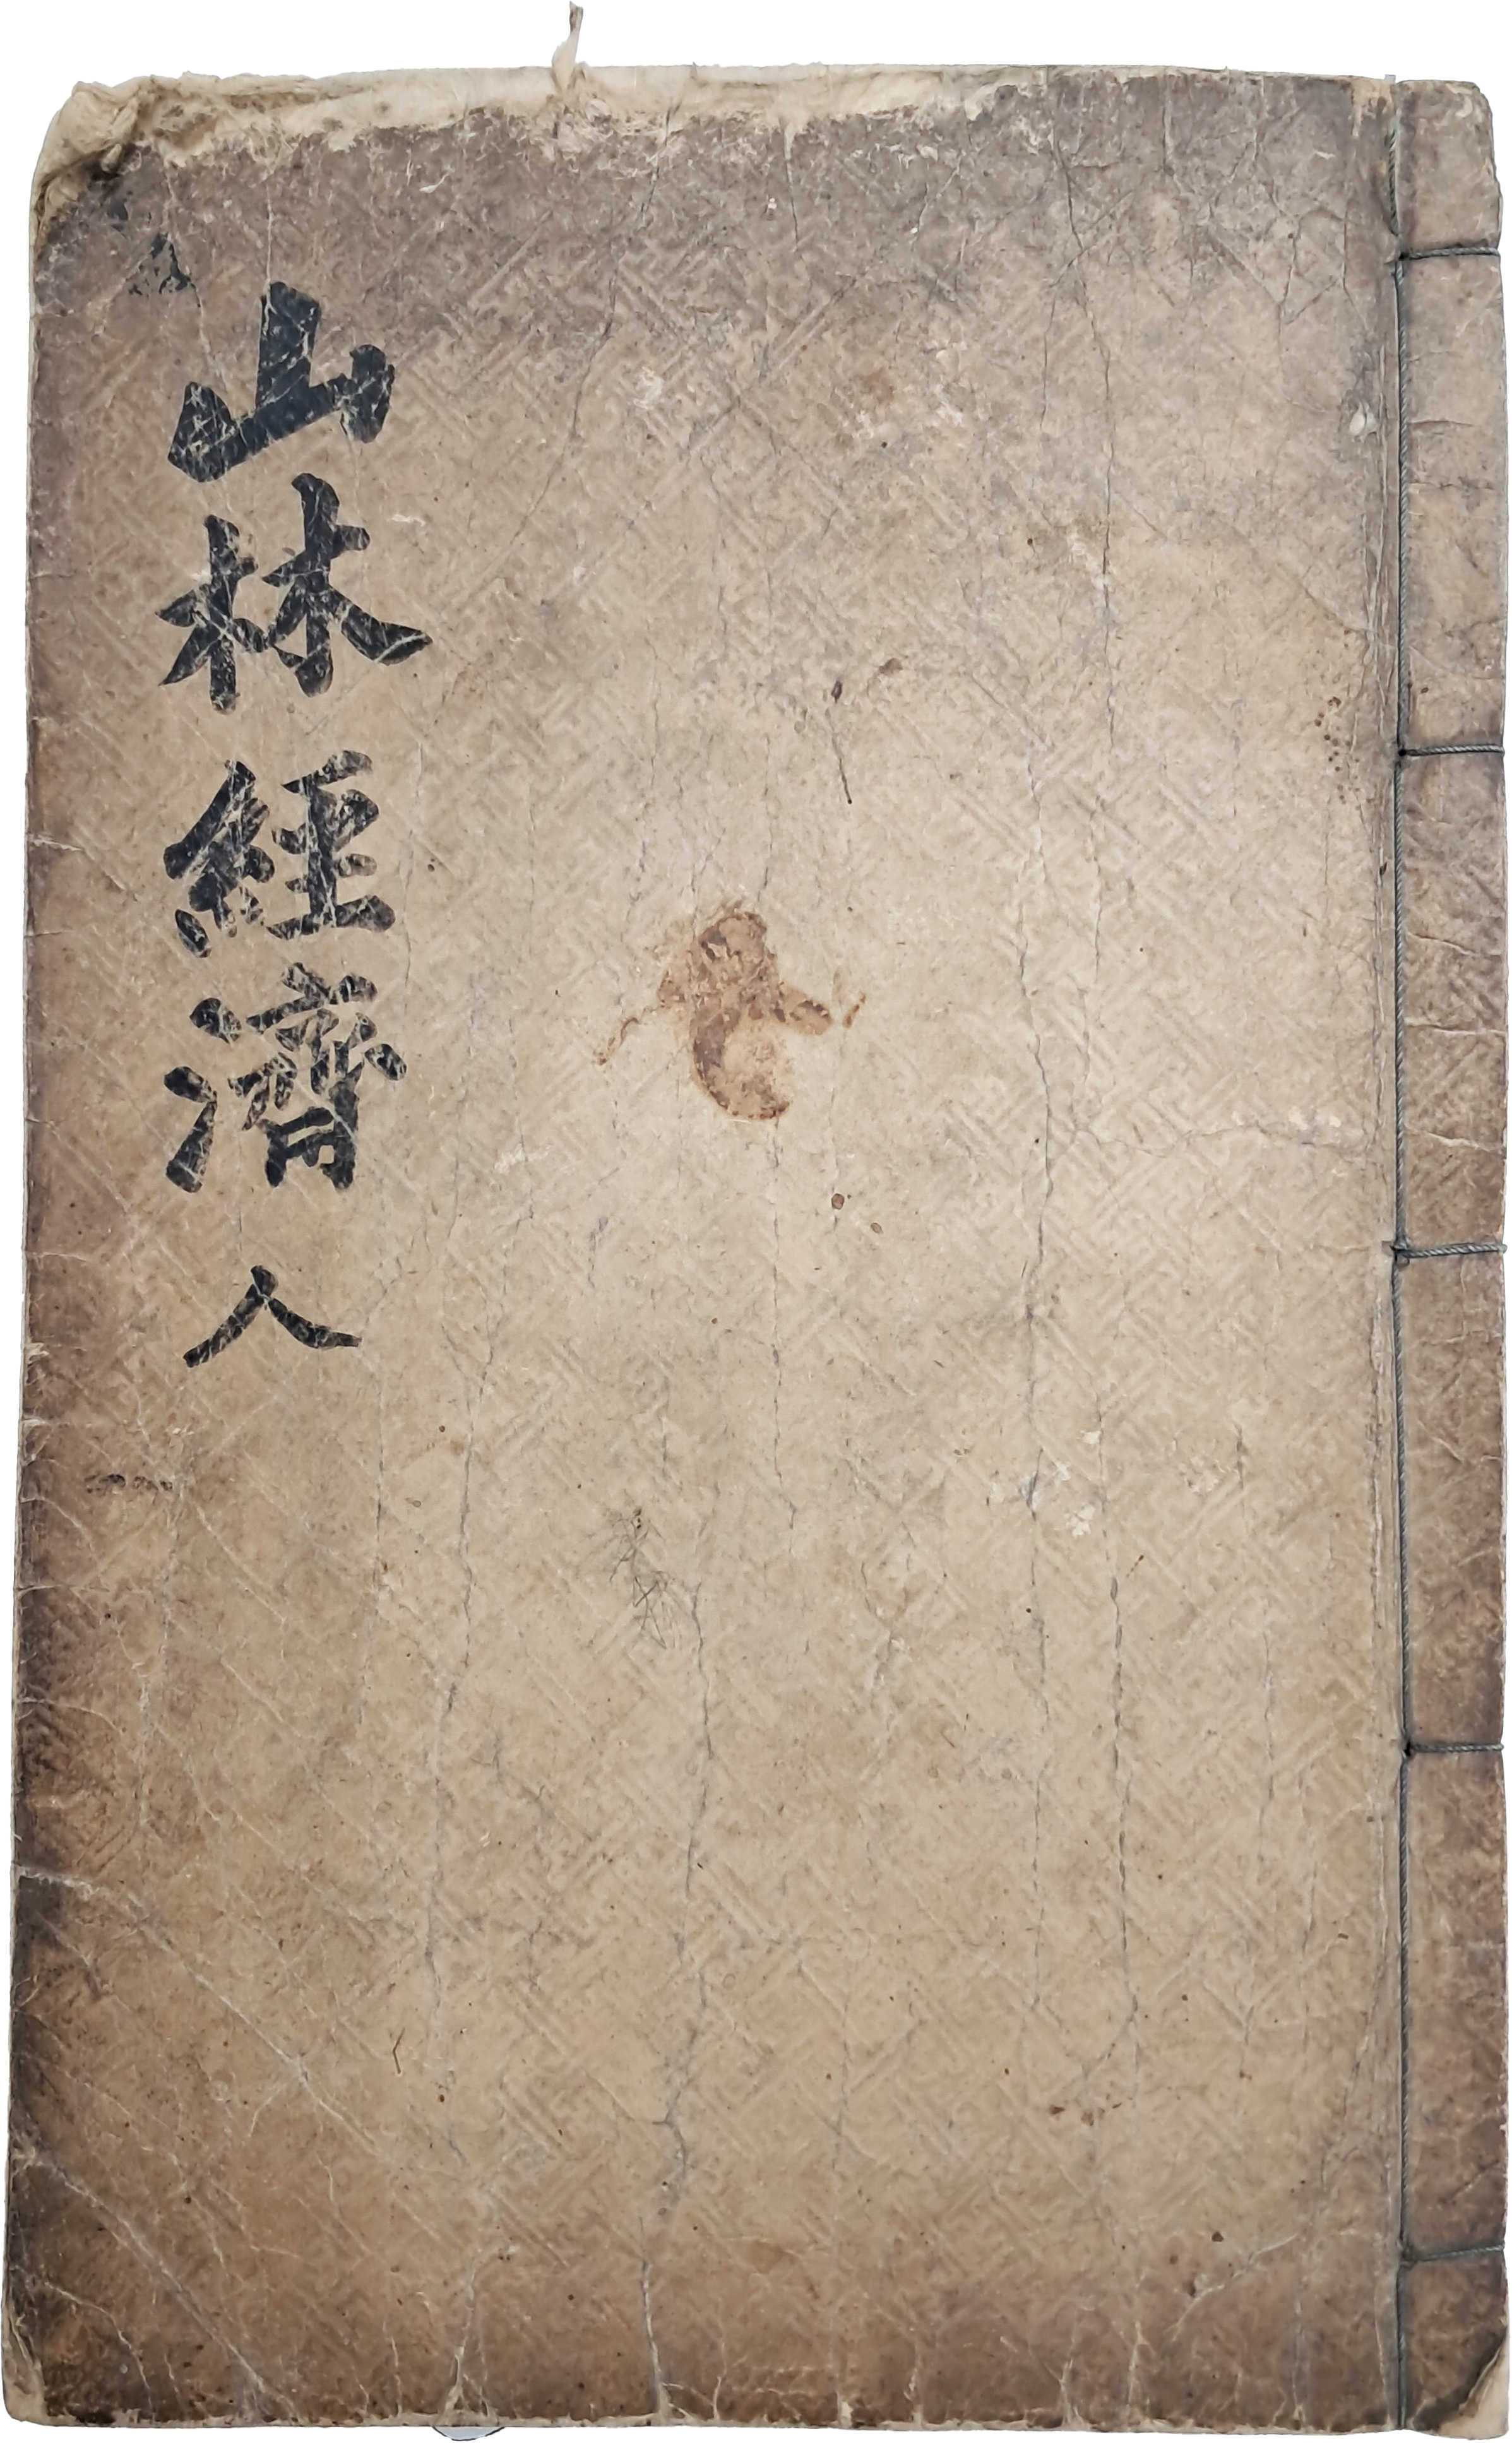 山林經濟 人